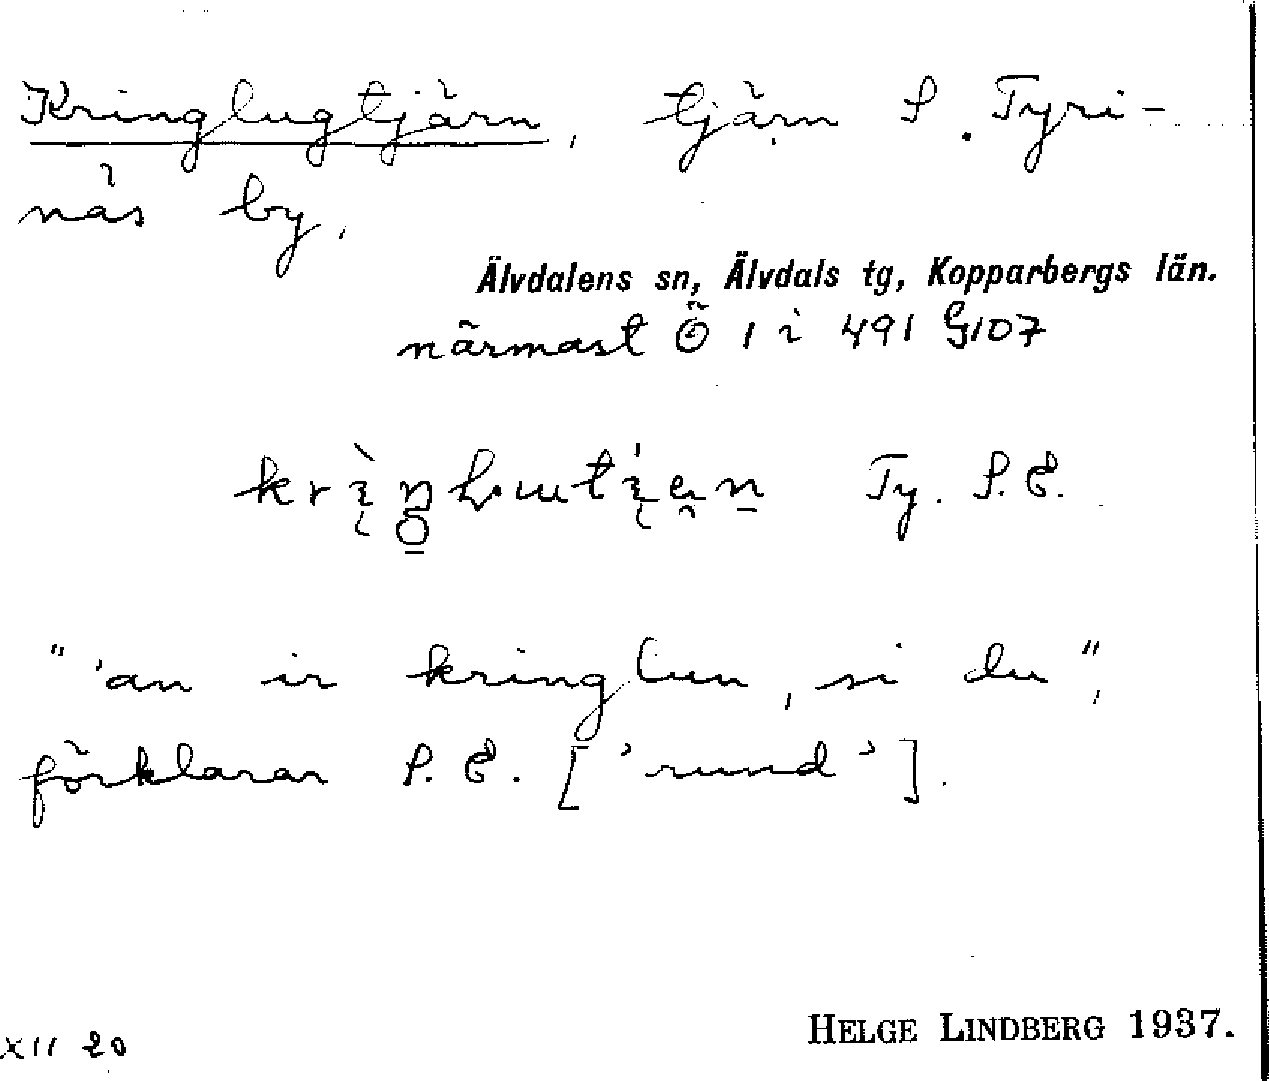 Kringlugtjärn, tjärn S. Tyri-
näs by,
Älvdalens sn, Älvdals tg, Kopparbergs län.
närmast Ö 1 i 491 G107
Ty. P.E.
"'an ir kringlun, si du",
förklarar P.E. ['rund'].
HELGE LINDBERG 1937.
XII 20